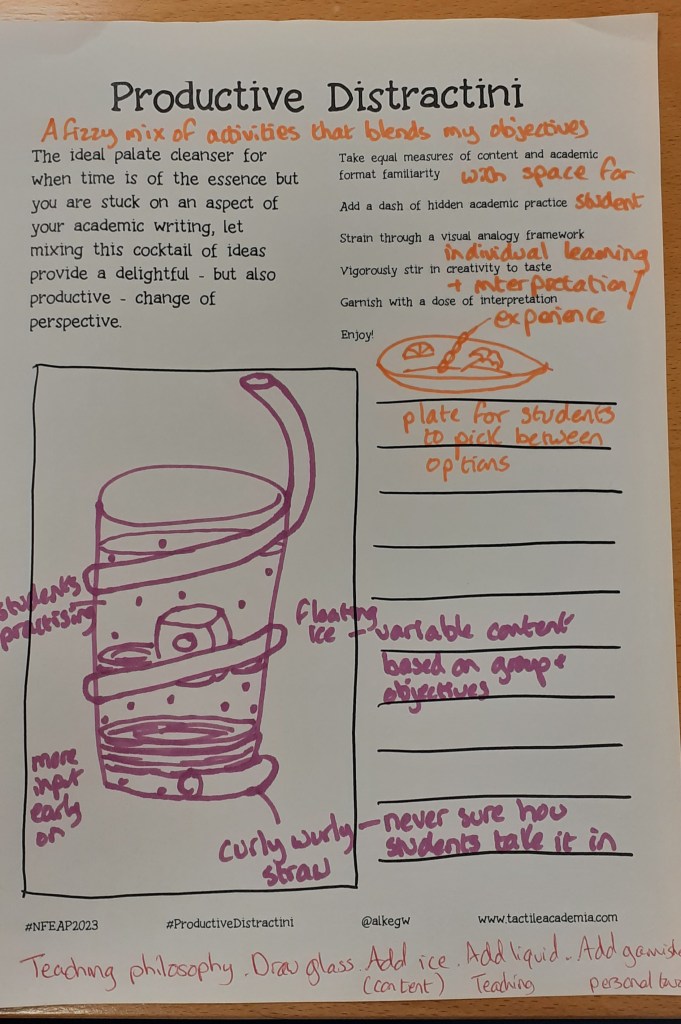 Productive Distractini
A fizzy mix of activities that blends my objectives
The ideal palate cleanser for
when time is of the essence but
you are stuck on an aspect of
your academic writing, let
mixing this cocktail of ideas
provide a delightful - but also
productive - change of
perspective.
Take equal measures of content and academic
format familiarity
with space for
Add a dash of hidden academic practice
student
Strain through a visual analogy framework
individual learning
Vigorously stir in creativity to taste
+ interpretation/
Garnish with a dose of interpretation
experience
Enjoy!
plate for students
to pick between
options
students
practising
floating
ice - variable content
based on group +
objectives
more
input
early
on
curly wurly - never sure how
straw
students take it in
#NFEAP2023
#ProductiveDistractini
@alkegw
www.tactileacademia.com
Teaching philosophy. Draw glass. Add ice. Add liquid. Add garnish
(content)
Teaching
personal